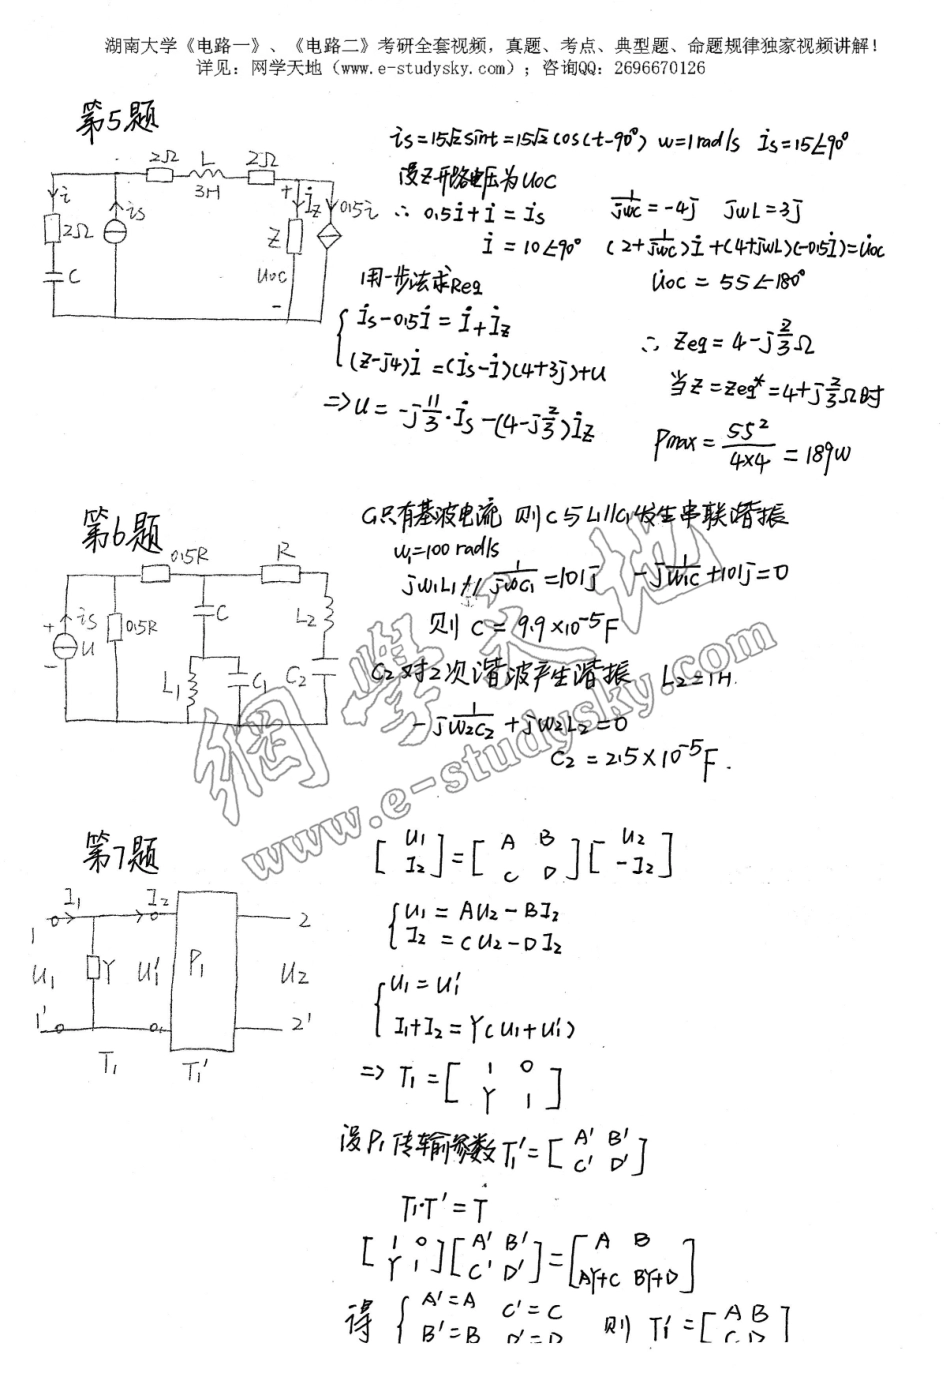 湖南大学《电路一》、《电路二》考研全套视频，真题、考点、典型题、命题规律独家视频讲解！
详见：网学天地（www.e-studysky.com）；咨询QQ：2696670126
第5题
2Ω L 2Ω
3H
i
is
2Ω
C
+ İz 0.5i
Z
Uoc
-
is=15√2sint=15√2cos(t-90°) w=1rad/s İs=15∠90°
设Z开路电压为Uoc
∴ 0.5İ+İ=İs 1/jwc=-4j jwL=3j
İ=10∠90° (2+1/jwc)İ+(4+jwL)(-0.5İ)=U̇oc
U̇oc=55∠180°
用一步法求Req
İs-0.5İ=İ+İz
(2-j4)İ=(İs-İ)(4+3j)+U
=>U=-j11/3·İs-(4-j2/3)İz
∴ Zeq=4-j2/3Ω
当Z=Zeq*=4+j2/3Ω时
Pmax=55²/4×4=189W
第6题
0.5R R
+ is
U
-
0.5R
C
L2
L1 C1 C2
C1只有基波电流 则C与L1//C1发生串联谐振
w1=100rad/s
jw1L1//1/jwC1=101j -j1/w1C+101j=0
则C=9.9×10⁻⁵F
C2对2次谐波产生谐振 L2=1H.
-j1/w2C2+jw2L2=0
C2=2.5×10⁻⁵F.
網學天地
www.e-studysky.com
第7题
I1 I2
1 2
U1 Y U1' P1 U2
1' 2'
T1 T1'
[U1 I2]=[A B C D][U2 -I2]
U1=AU2-BI2
I2=CU2-DI2
U1=U1'
I1+I2=Y(U1+U1')
=>T1=[1 0 Y 1]
设P1传输参数T1'=[A' B' C' D']
T1·T'=T
[1 0 Y 1][A' B' C' D']=[A B AY+C BY+D]
得 A'=A C'=C
B'=B D'=D 则T1'=[A B C D]